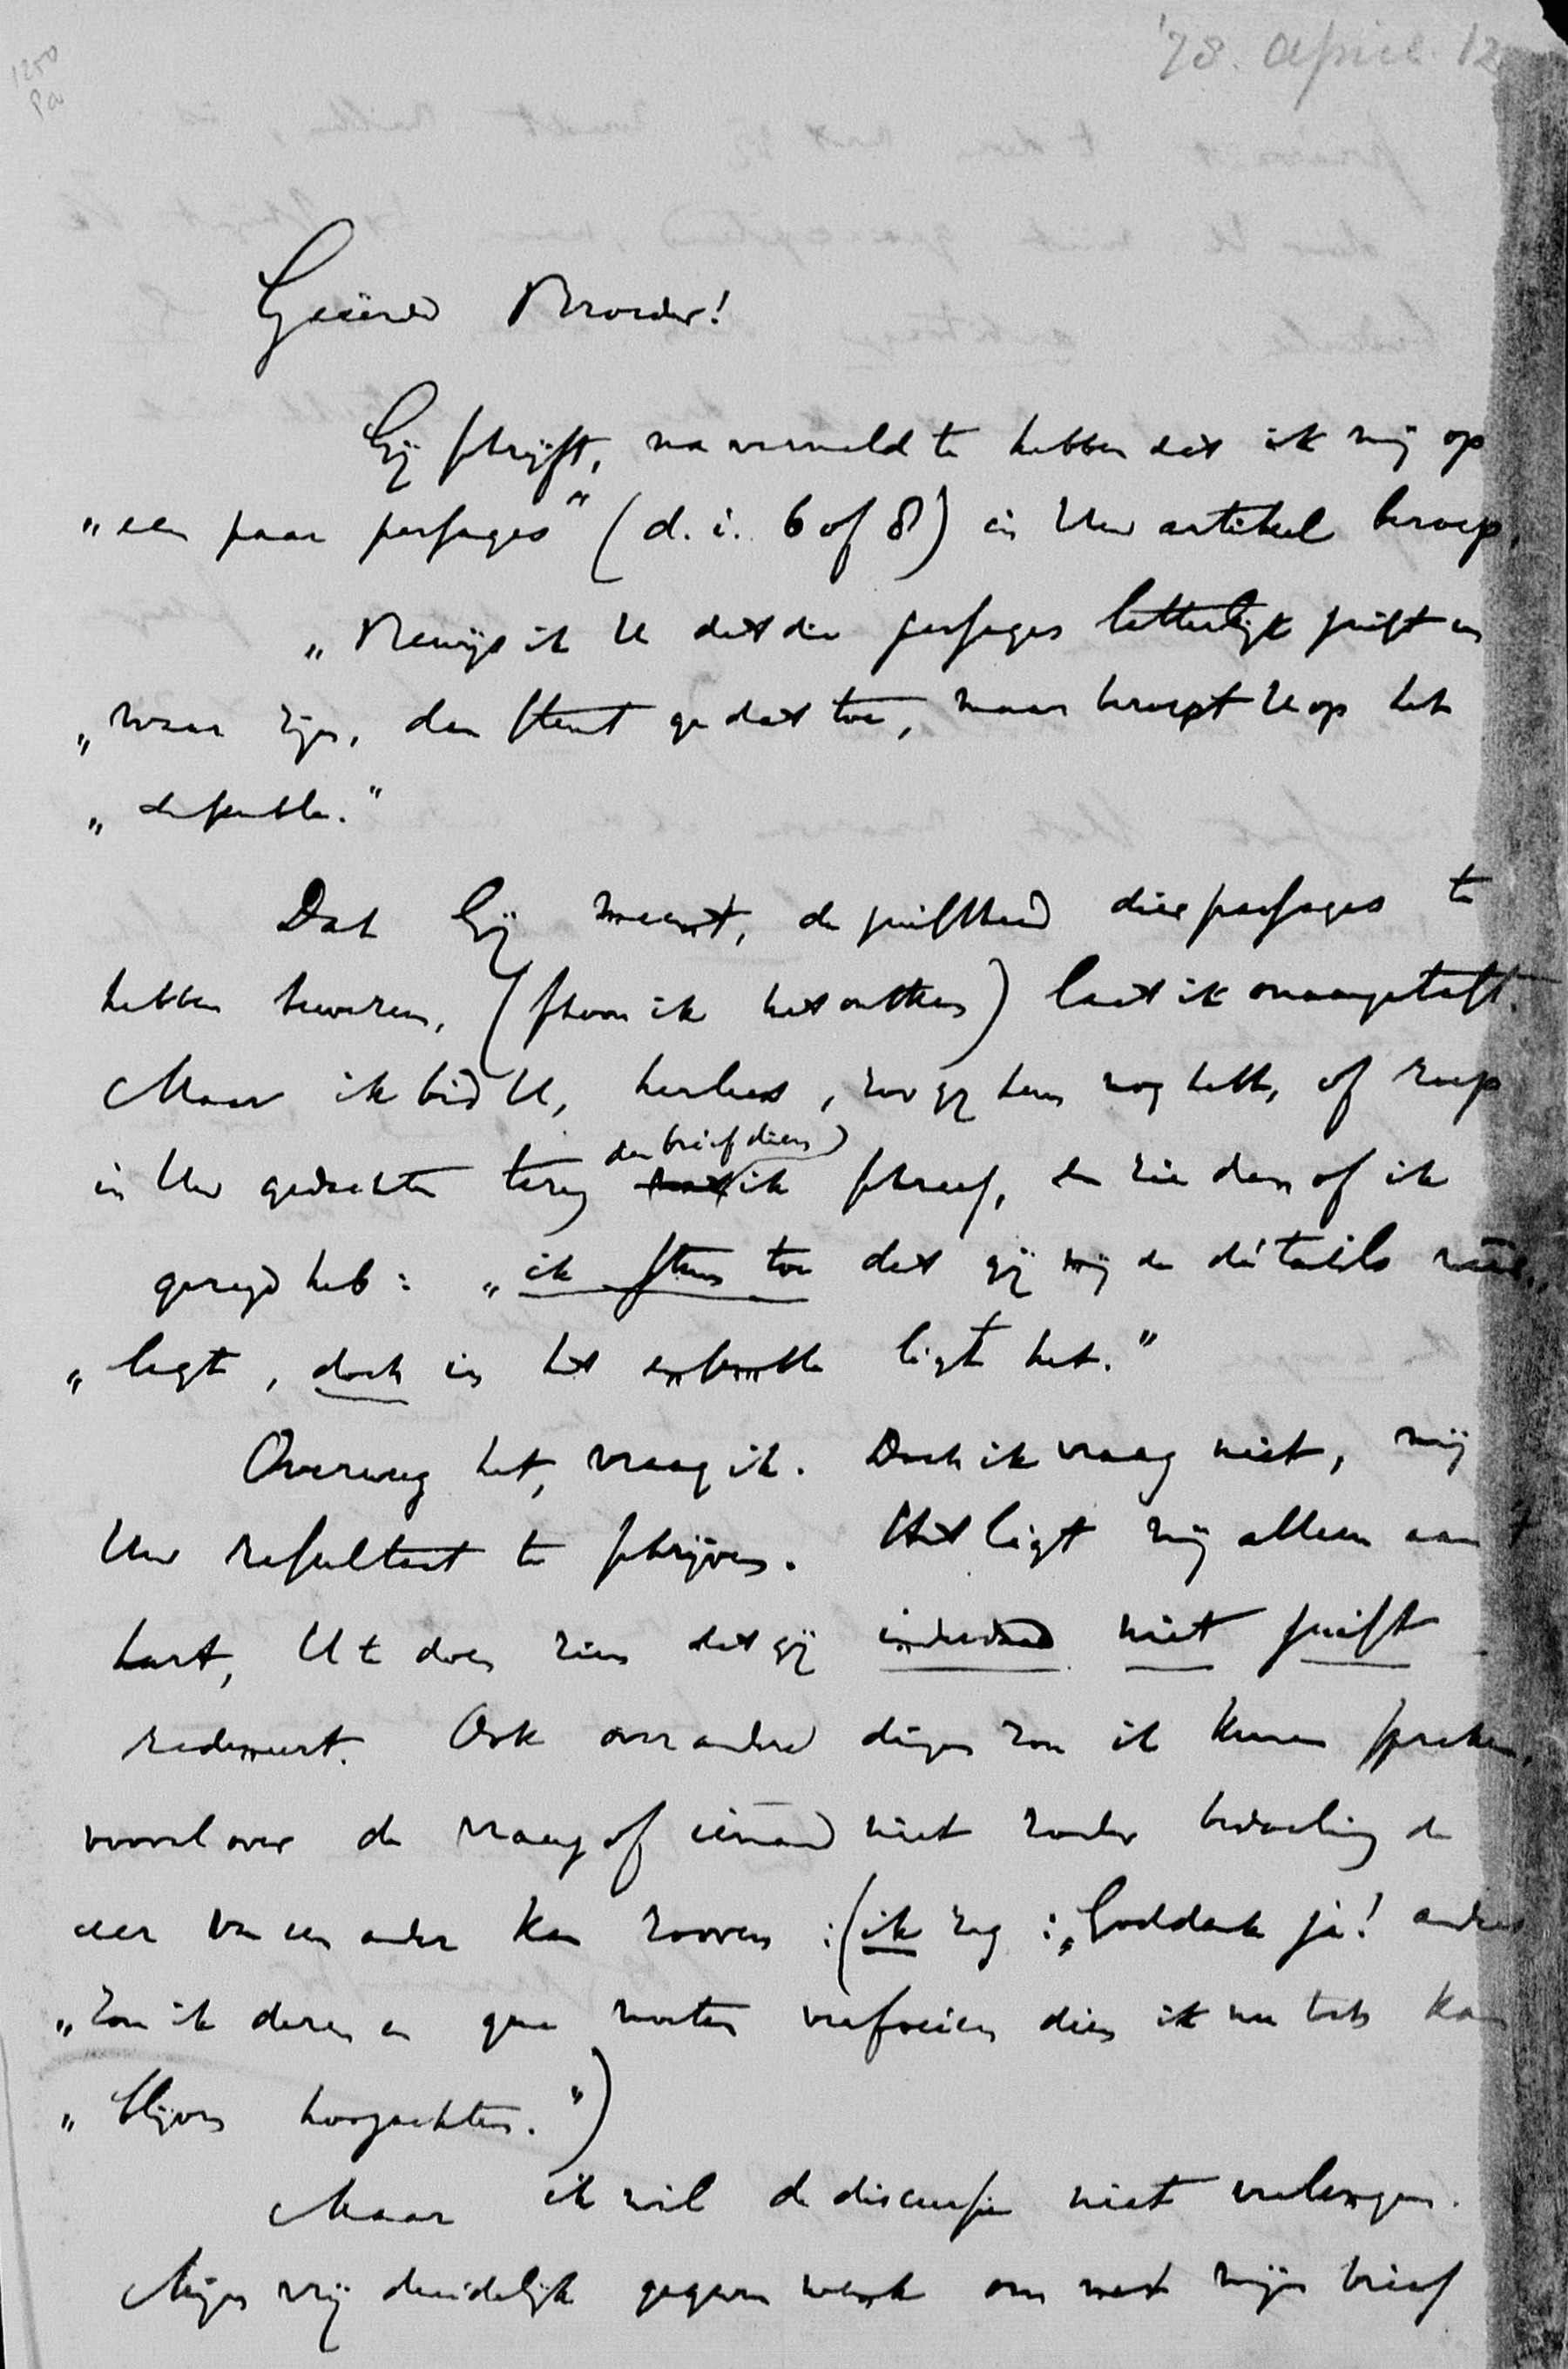 '78. April. 12
1250
Pa
Geëerde Broeder!
Gij schrijft, na vermeld te hebben dat ik mij op
„een paar passages" (d. i. 6 of 8) in Uw artikel beroep,
„Bewijs ik U dat die passages letterlijk juist en
„waar zijn, dan stemt ge dat toe, maar beroept U op het
„ensemble."
Dat Gij meent, de juistheid dier passages te
hebben bewezen, (schoon ik het ontken) laat ik onaangetast.
Maar ik bid U, herlees, zoo gij hem nog hebt, of roep
in Uw gedachten terug den brief dien ik schreef, en zie dan of ik
gezegd heb: „ik stem toe dat gij mij de détails
„legt, doch in het ensemble ligt het."
Overweeg het, vraag ik. Doch ik vraag niet, mij
Uw resultaat te schrijven. Het ligt mij alleen aan 't
hart, U te doen zien dat gij inderdaad niet juist
redeneert. Ook over andere dingen zou ik kunnen spreken,
vooral over de vraag of iemand niet zonder bedoeling de
eer van een ander kan rooven: (ik zeg: „Goddank ja! anders
„zou ik dezen en gene moeten verfoeien dien ik nu toch kan
„blijven hoogachten.")
Maar ik wil de discussie niet verlengen.
Mijn vrij duidelijk gegeven wenk om met mijn brief